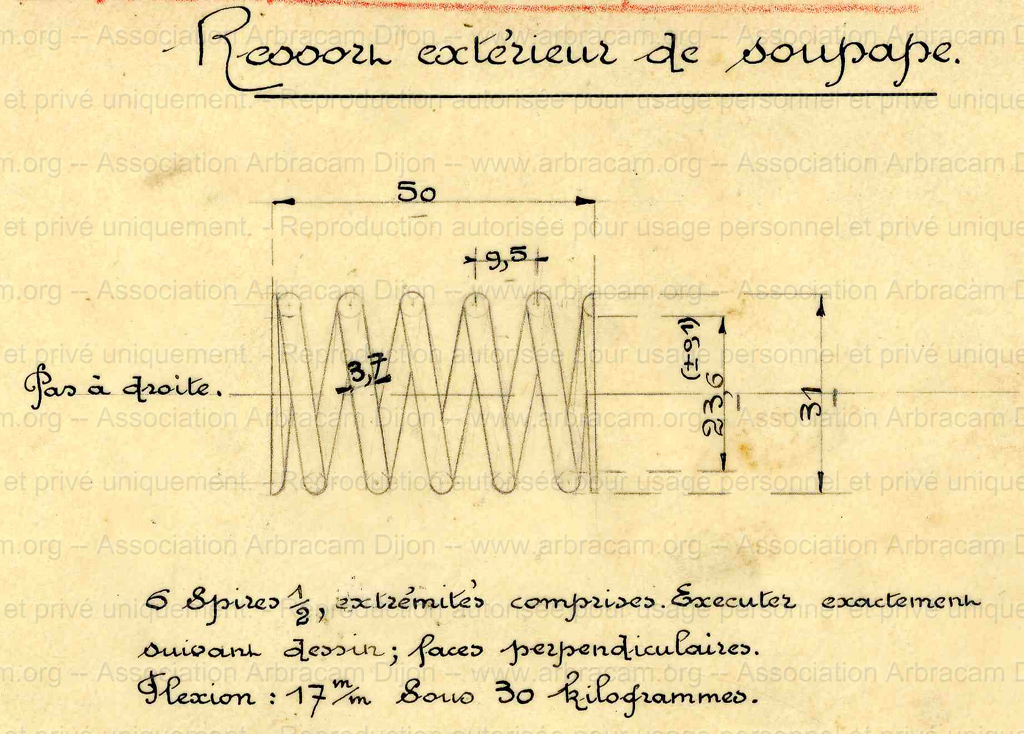 Ressort extérieur de soupape.
50
9,5
3,7
Pas à droite.
23,6 (±0,1)
31
6 Spires 1/2, extrémités comprises. Executer exactement
suivant dessin; faces perpendiculaires.
Flexion : 17 m/m Sous 30 kilogrammes.
m.org -- Association Arbracam Dijon -- www.arbracam.org -- Association Arbracam D
et privé uniquement. - Reproduction autorisée pour usage personnel et privé unique